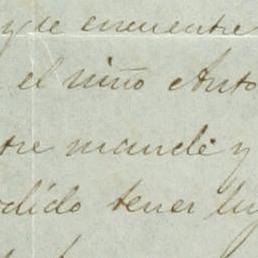 y se encuentre
el niño Anto
tre mande y
dido tener lu